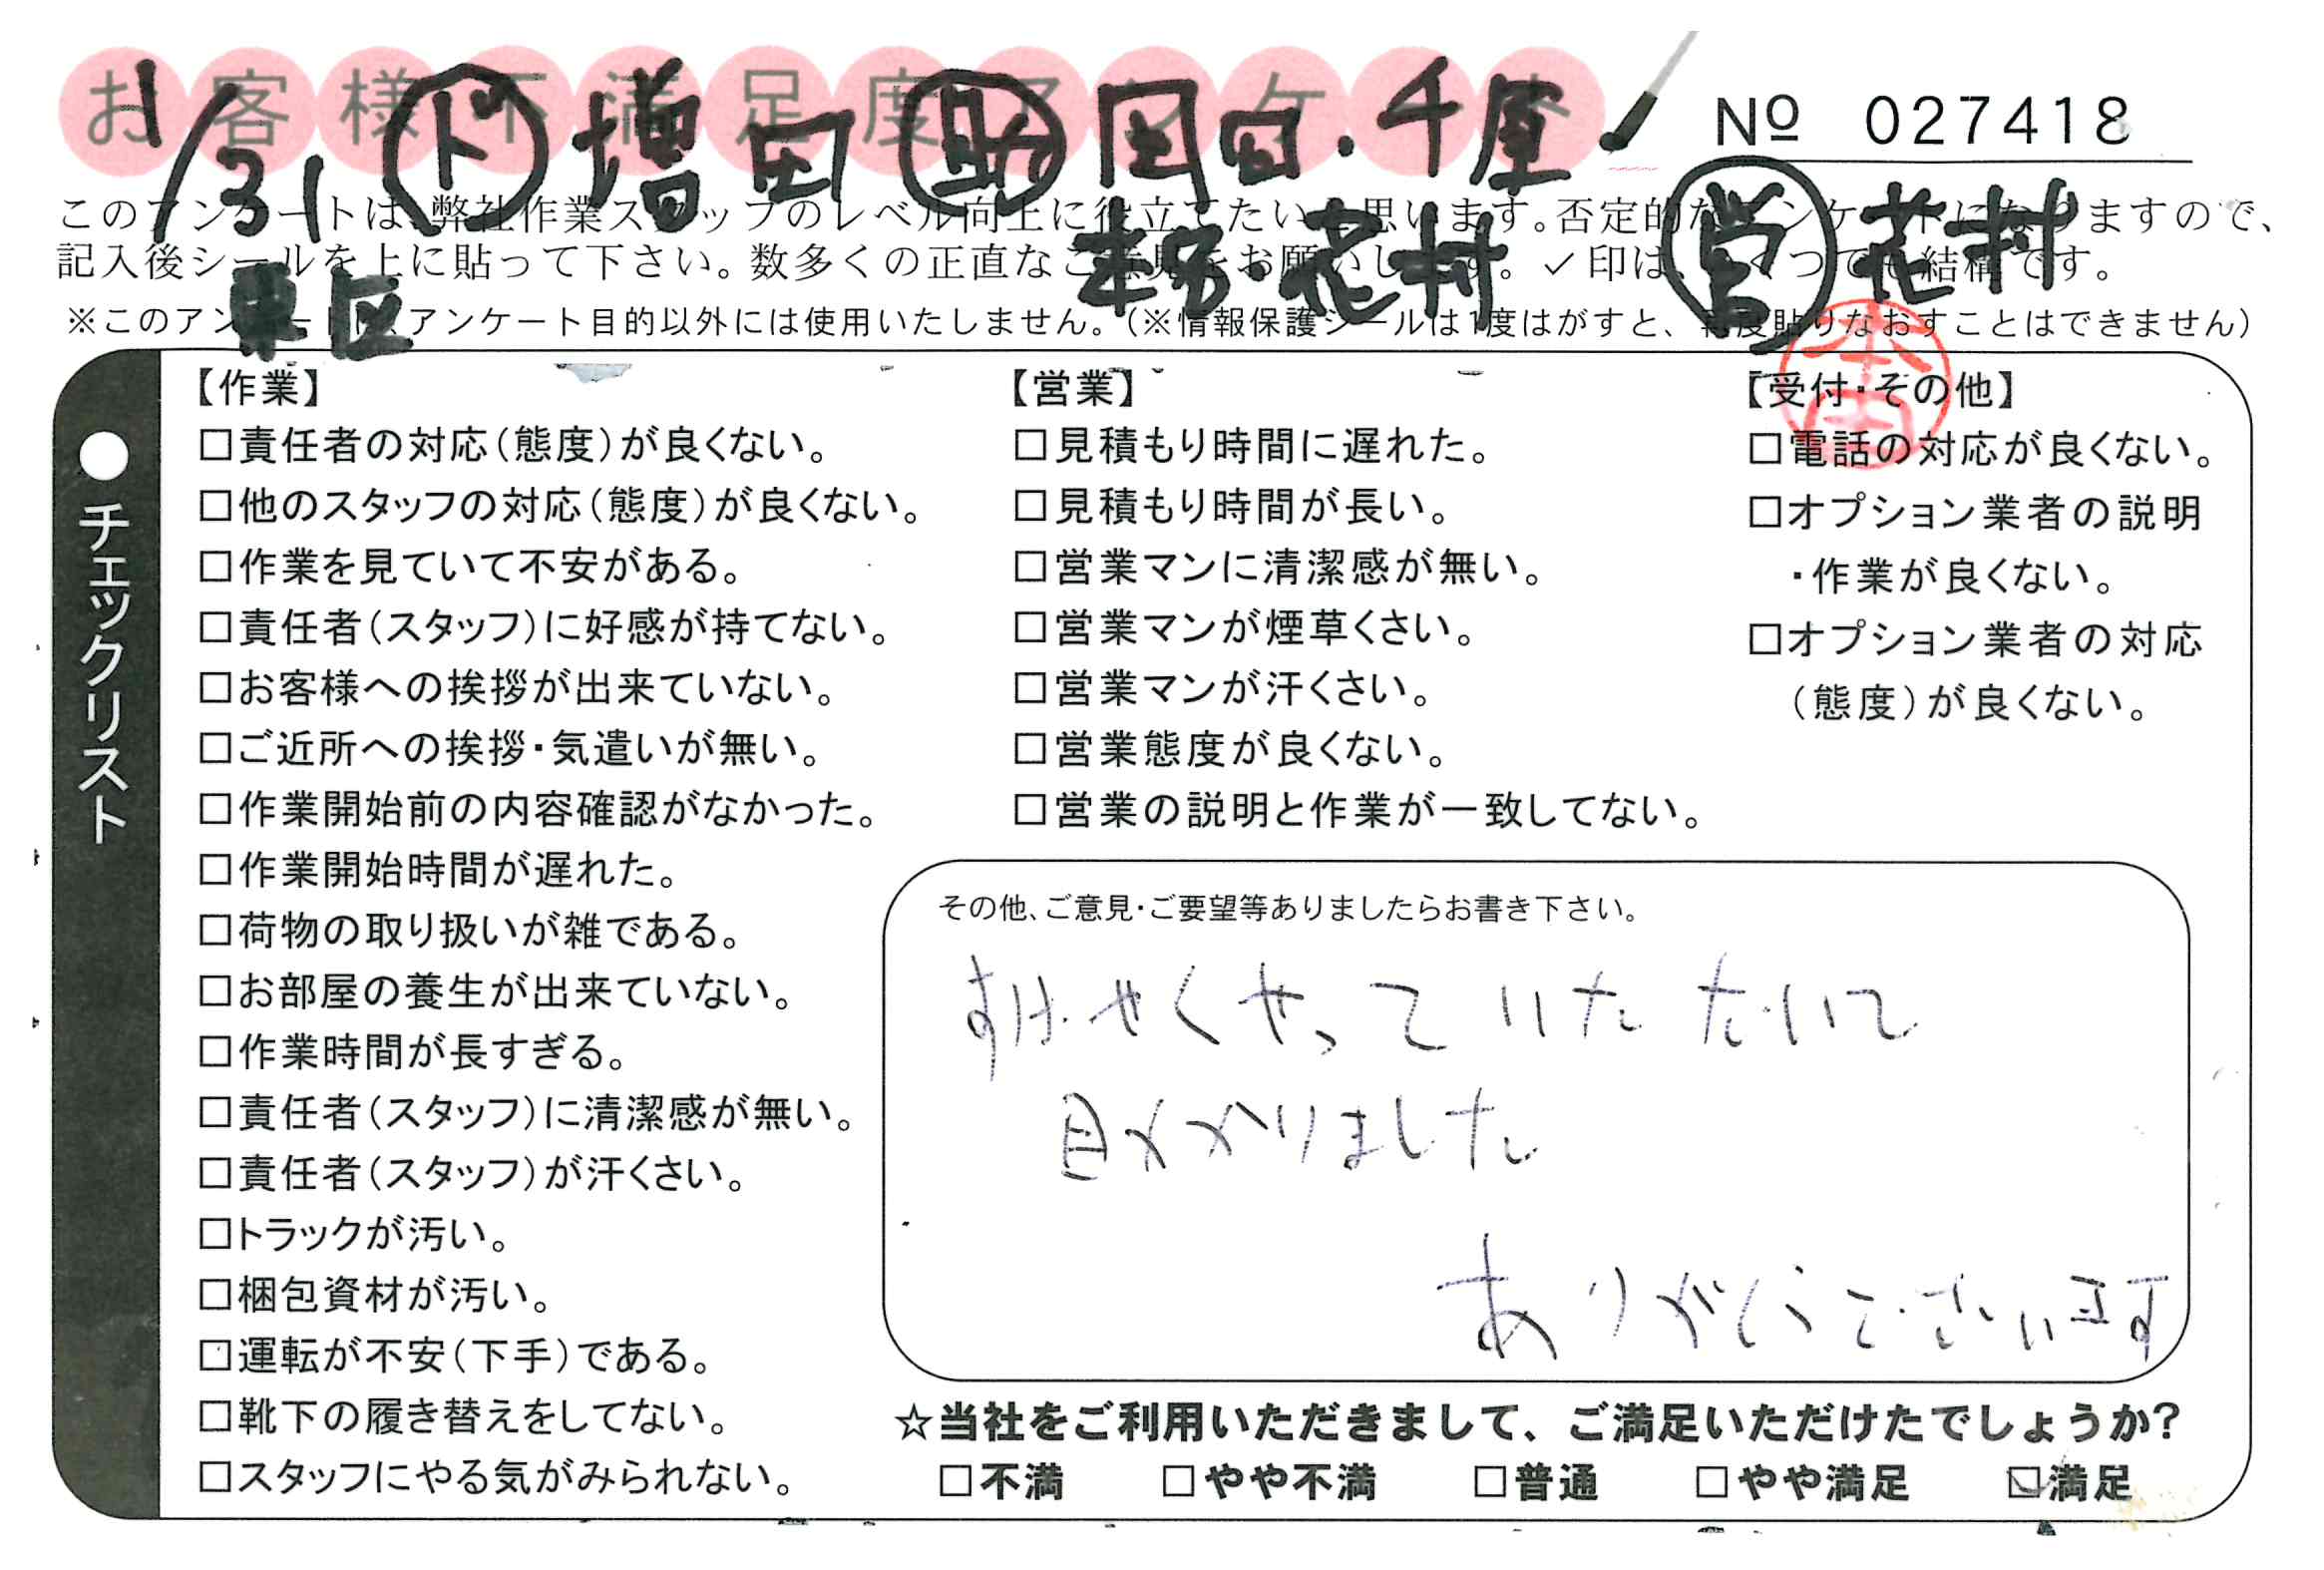 お客様不満足度アンケート
№ 027418
1/31 ド 増田 助 岡田・千原
東区 本多・花村 営 花村
このアンケートは、弊社作業スタッフのレベル向上に役立てたいと思います。否定的なアンケートになりますので、
記入後シールを上に貼って下さい。数多くの正直なご意見をお願いします。✓印は、いくつでも結構です。
※このアンケートはアンケート目的以外には使用いたしません。（※情報保護シールは1度はがすと、再度貼りなおすことはできません）
本田
●チェックリスト
【作業】
□責任者の対応（態度）が良くない。
□他のスタッフの対応（態度）が良くない。
□作業を見ていて不安がある。
□責任者（スタッフ）に好感が持てない。
□お客様への挨拶が出来ていない。
□ご近所への挨拶・気遣いが無い。
□作業開始前の内容確認がなかった。
□作業開始時間が遅れた。
□荷物の取り扱いが雑である。
□お部屋の養生が出来ていない。
□作業時間が長すぎる。
□責任者（スタッフ）に清潔感が無い。
□責任者（スタッフ）が汗くさい。
□トラックが汚い。
□梱包資材が汚い。
□運転が不安（下手）である。
□靴下の履き替えをしてない。
□スタッフにやる気がみられない。
【営業】
□見積もり時間に遅れた。
□見積もり時間が長い。
□営業マンに清潔感が無い。
□営業マンが煙草くさい。
□営業マンが汗くさい。
□営業態度が良くない。
□営業の説明と作業が一致してない。
【受付・その他】
□電話の対応が良くない。
□オプション業者の説明
・作業が良くない。
□オプション業者の対応
（態度）が良くない。
その他、ご意見・ご要望等ありましたらお書き下さい。
すばやくやっていただいて
助かりました
ありがとうございます
☆当社をご利用いただきまして、ご満足いただけたでしょうか？
□不満 □やや不満 □普通 □やや満足 ☑満足